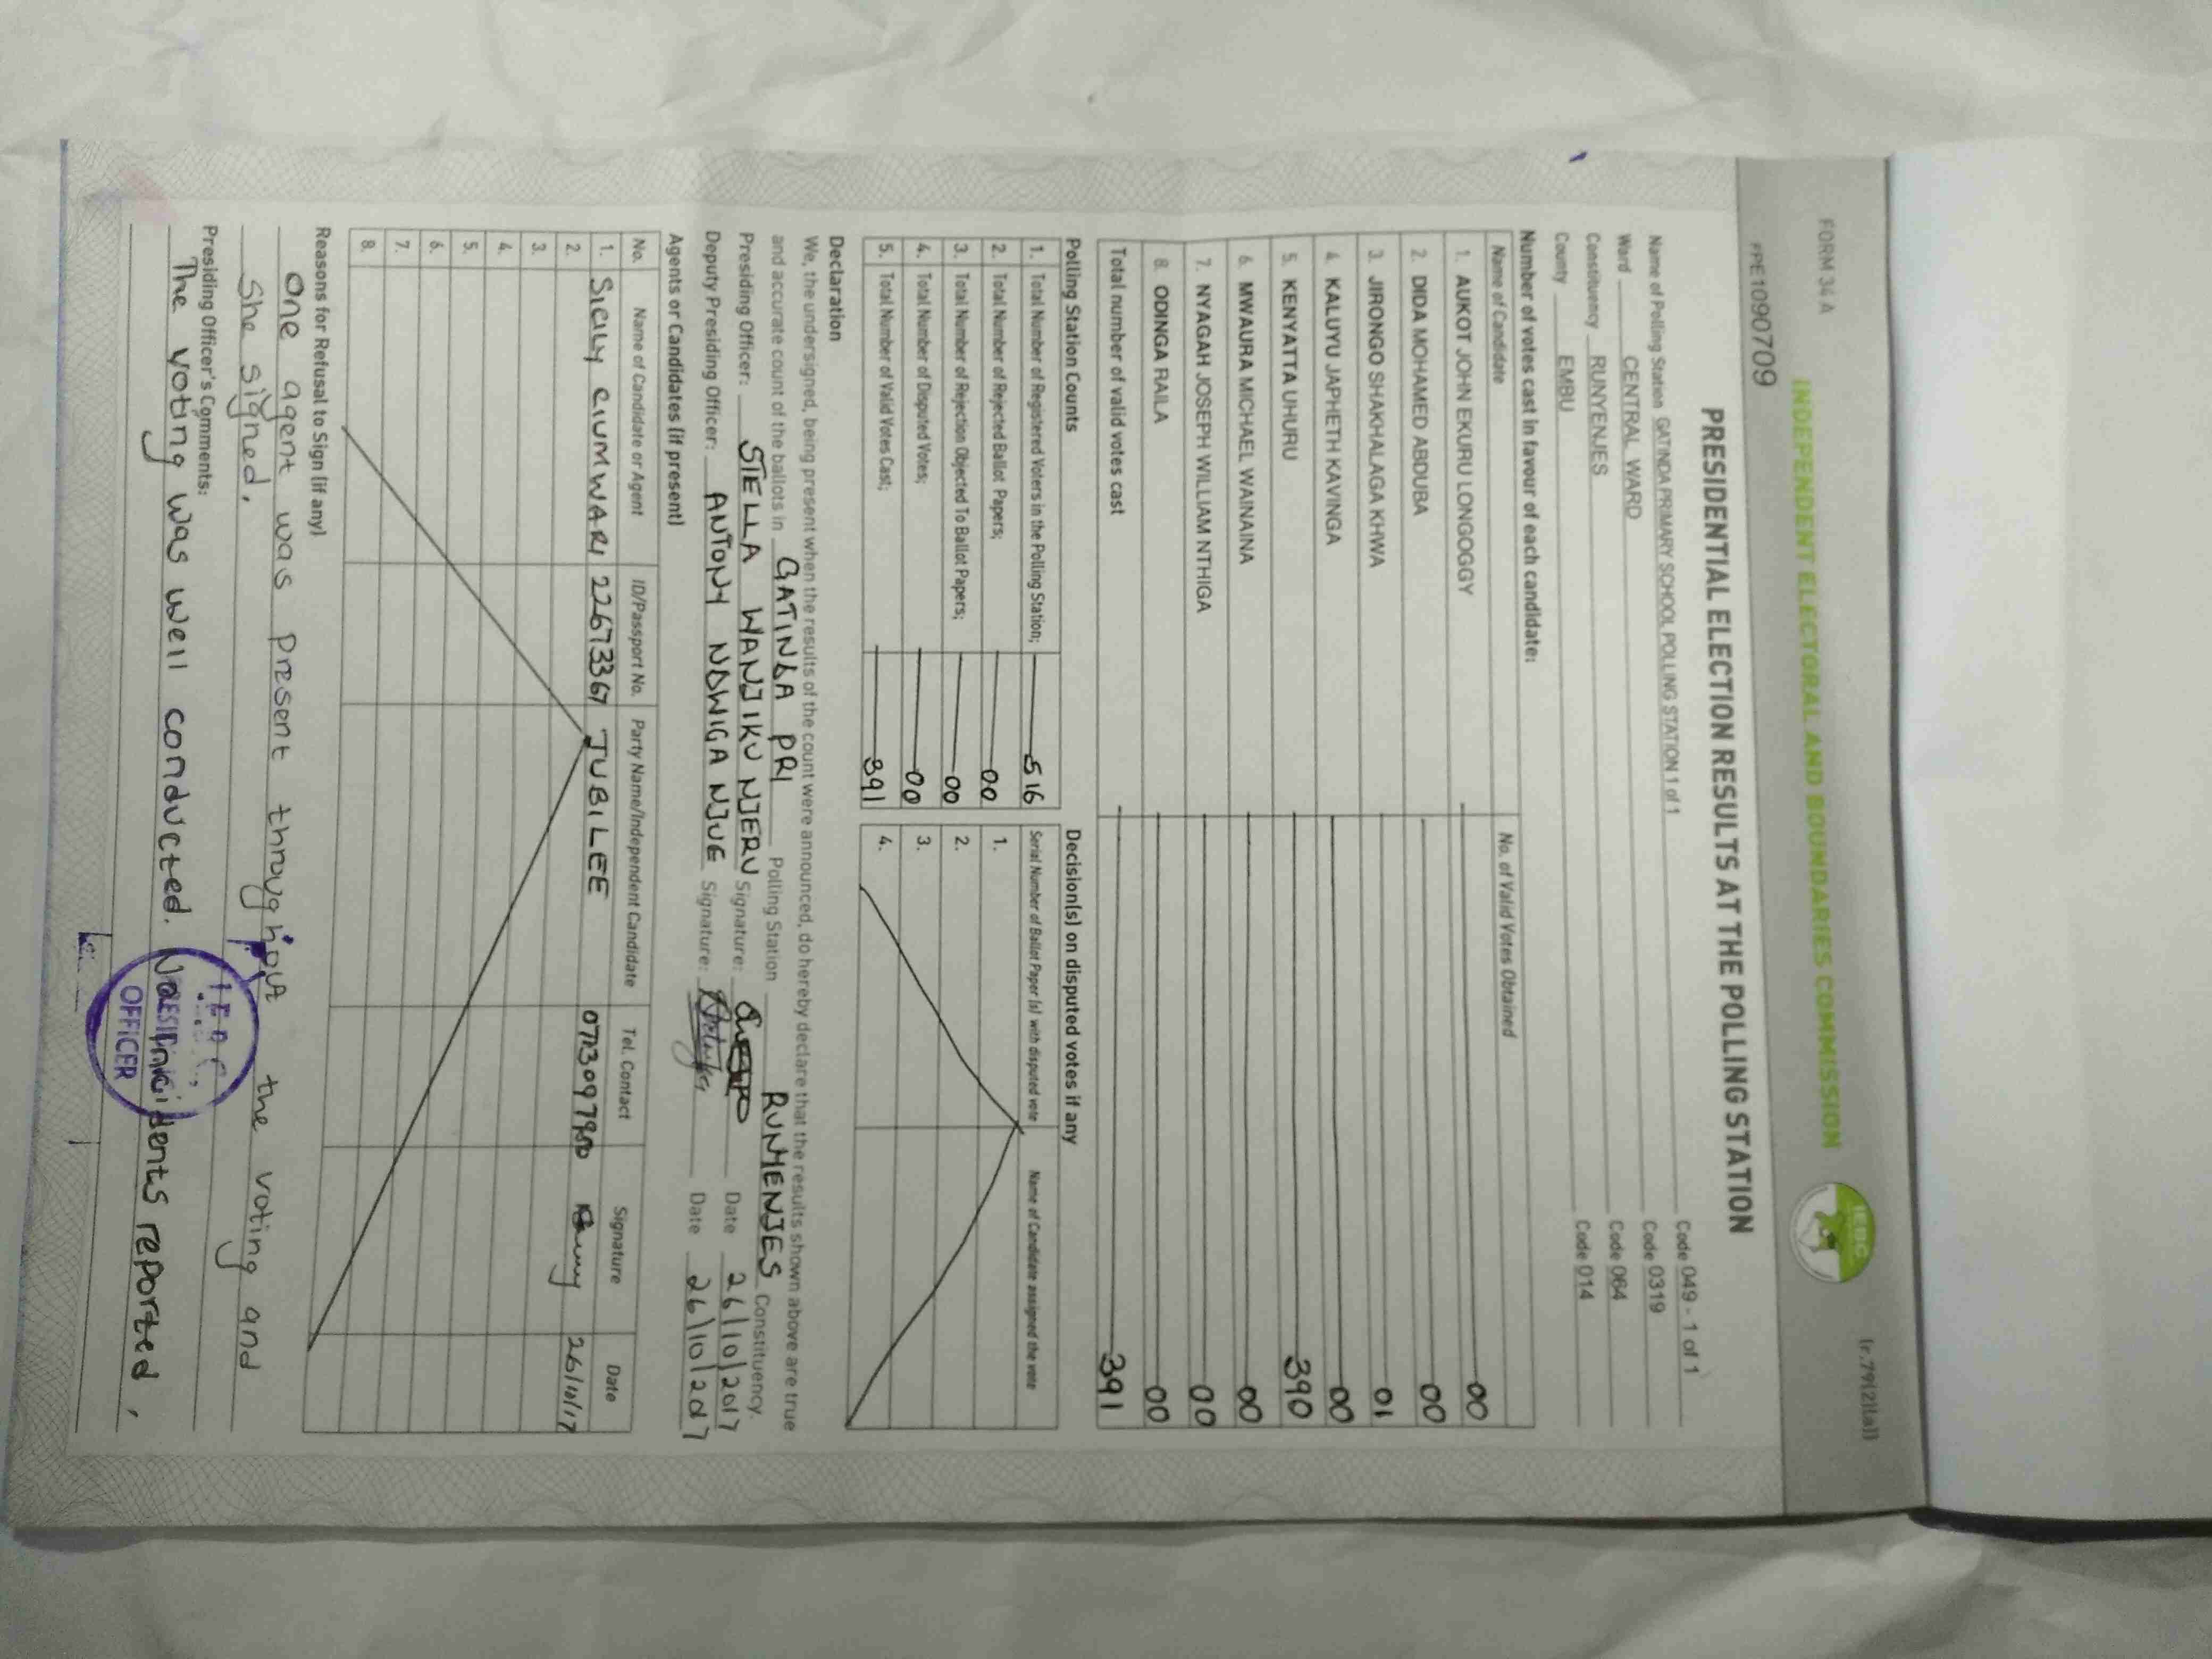 FORM 34 A
(r.79(2)(a))
INDEPENDENT ELECTORAL AND BOUNDARIES COMMISSION
IEBC
PPE1090709
PRESIDENTIAL ELECTION RESULTS AT THE POLLING STATION
Name of Polling Station GATINDA PRIMARY SCHOOL POLLING STATION 1 of 1 Code 049 - 1 of 1
Ward CENTRAL WARD Code 0319
Constituency RUNYENJES Code 064
County EMBU Code 014
Number of votes cast in favour of each candidate:
Name of Candidate No. of Valid Votes Obtained
1. AUKOT JOHN EKURU LONGOGGY 00
2. DIDA MOHAMED ABDUBA 00
3. JIRONGO SHAKHALAGA KHWA 01
4. KALUYU JAPHETH KAVINGA 00
5. KENYATTA UHURU 390
6. MWAURA MICHAEL WAINAINA 00
7. NYAGAH JOSEPH WILLIAM NTHIGA 00
8. ODINGA RAILA 00
Total number of valid votes cast 391
Polling Station Counts
1. Total Number of Registered Voters in the Polling Station; 516
2. Total Number of Rejected Ballot Papers; 00
3. Total Number of Rejection Objected To Ballot Papers; 00
4. Total Number of Disputed Votes; 00
5. Total Number of Valid Votes Cast; 391
Decision(s) on disputed votes if any
Serial Number of Ballot Paper (s) with disputed vote Name of Candidate assigned the vote
1.
2.
3.
4.
Declaration
We, the undersigned, being present when the results of the count were announced, do hereby declare that the results shown above are true
and accurate count of the ballots in GATINDA PRI Polling Station RUNYENJES Constituency.
Presiding Officer: STELLA WANJIKU NJERU Signature: Date 26/10/2017
Deputy Presiding Officer: ANTONY NDWIGA NJUE Signature: Date 26/10/2017
Agents or Candidates (if present)
No. Name of Candidate or Agent ID/Passport No. Party Name/Independent Candidate Tel. Contact Signature Date
1. SICILY CIUMWARI 22673367 JUBILEE 26/10/17
2.
3.
4.
5.
6.
7.
8.
Reasons for Refusal to Sign (if any)
One agent was present throughout the voting and
she signed.
Presiding Officer's Comments:
The voting was well conducted. No incidents reported.
IEBC
PRESIDING
OFFICER